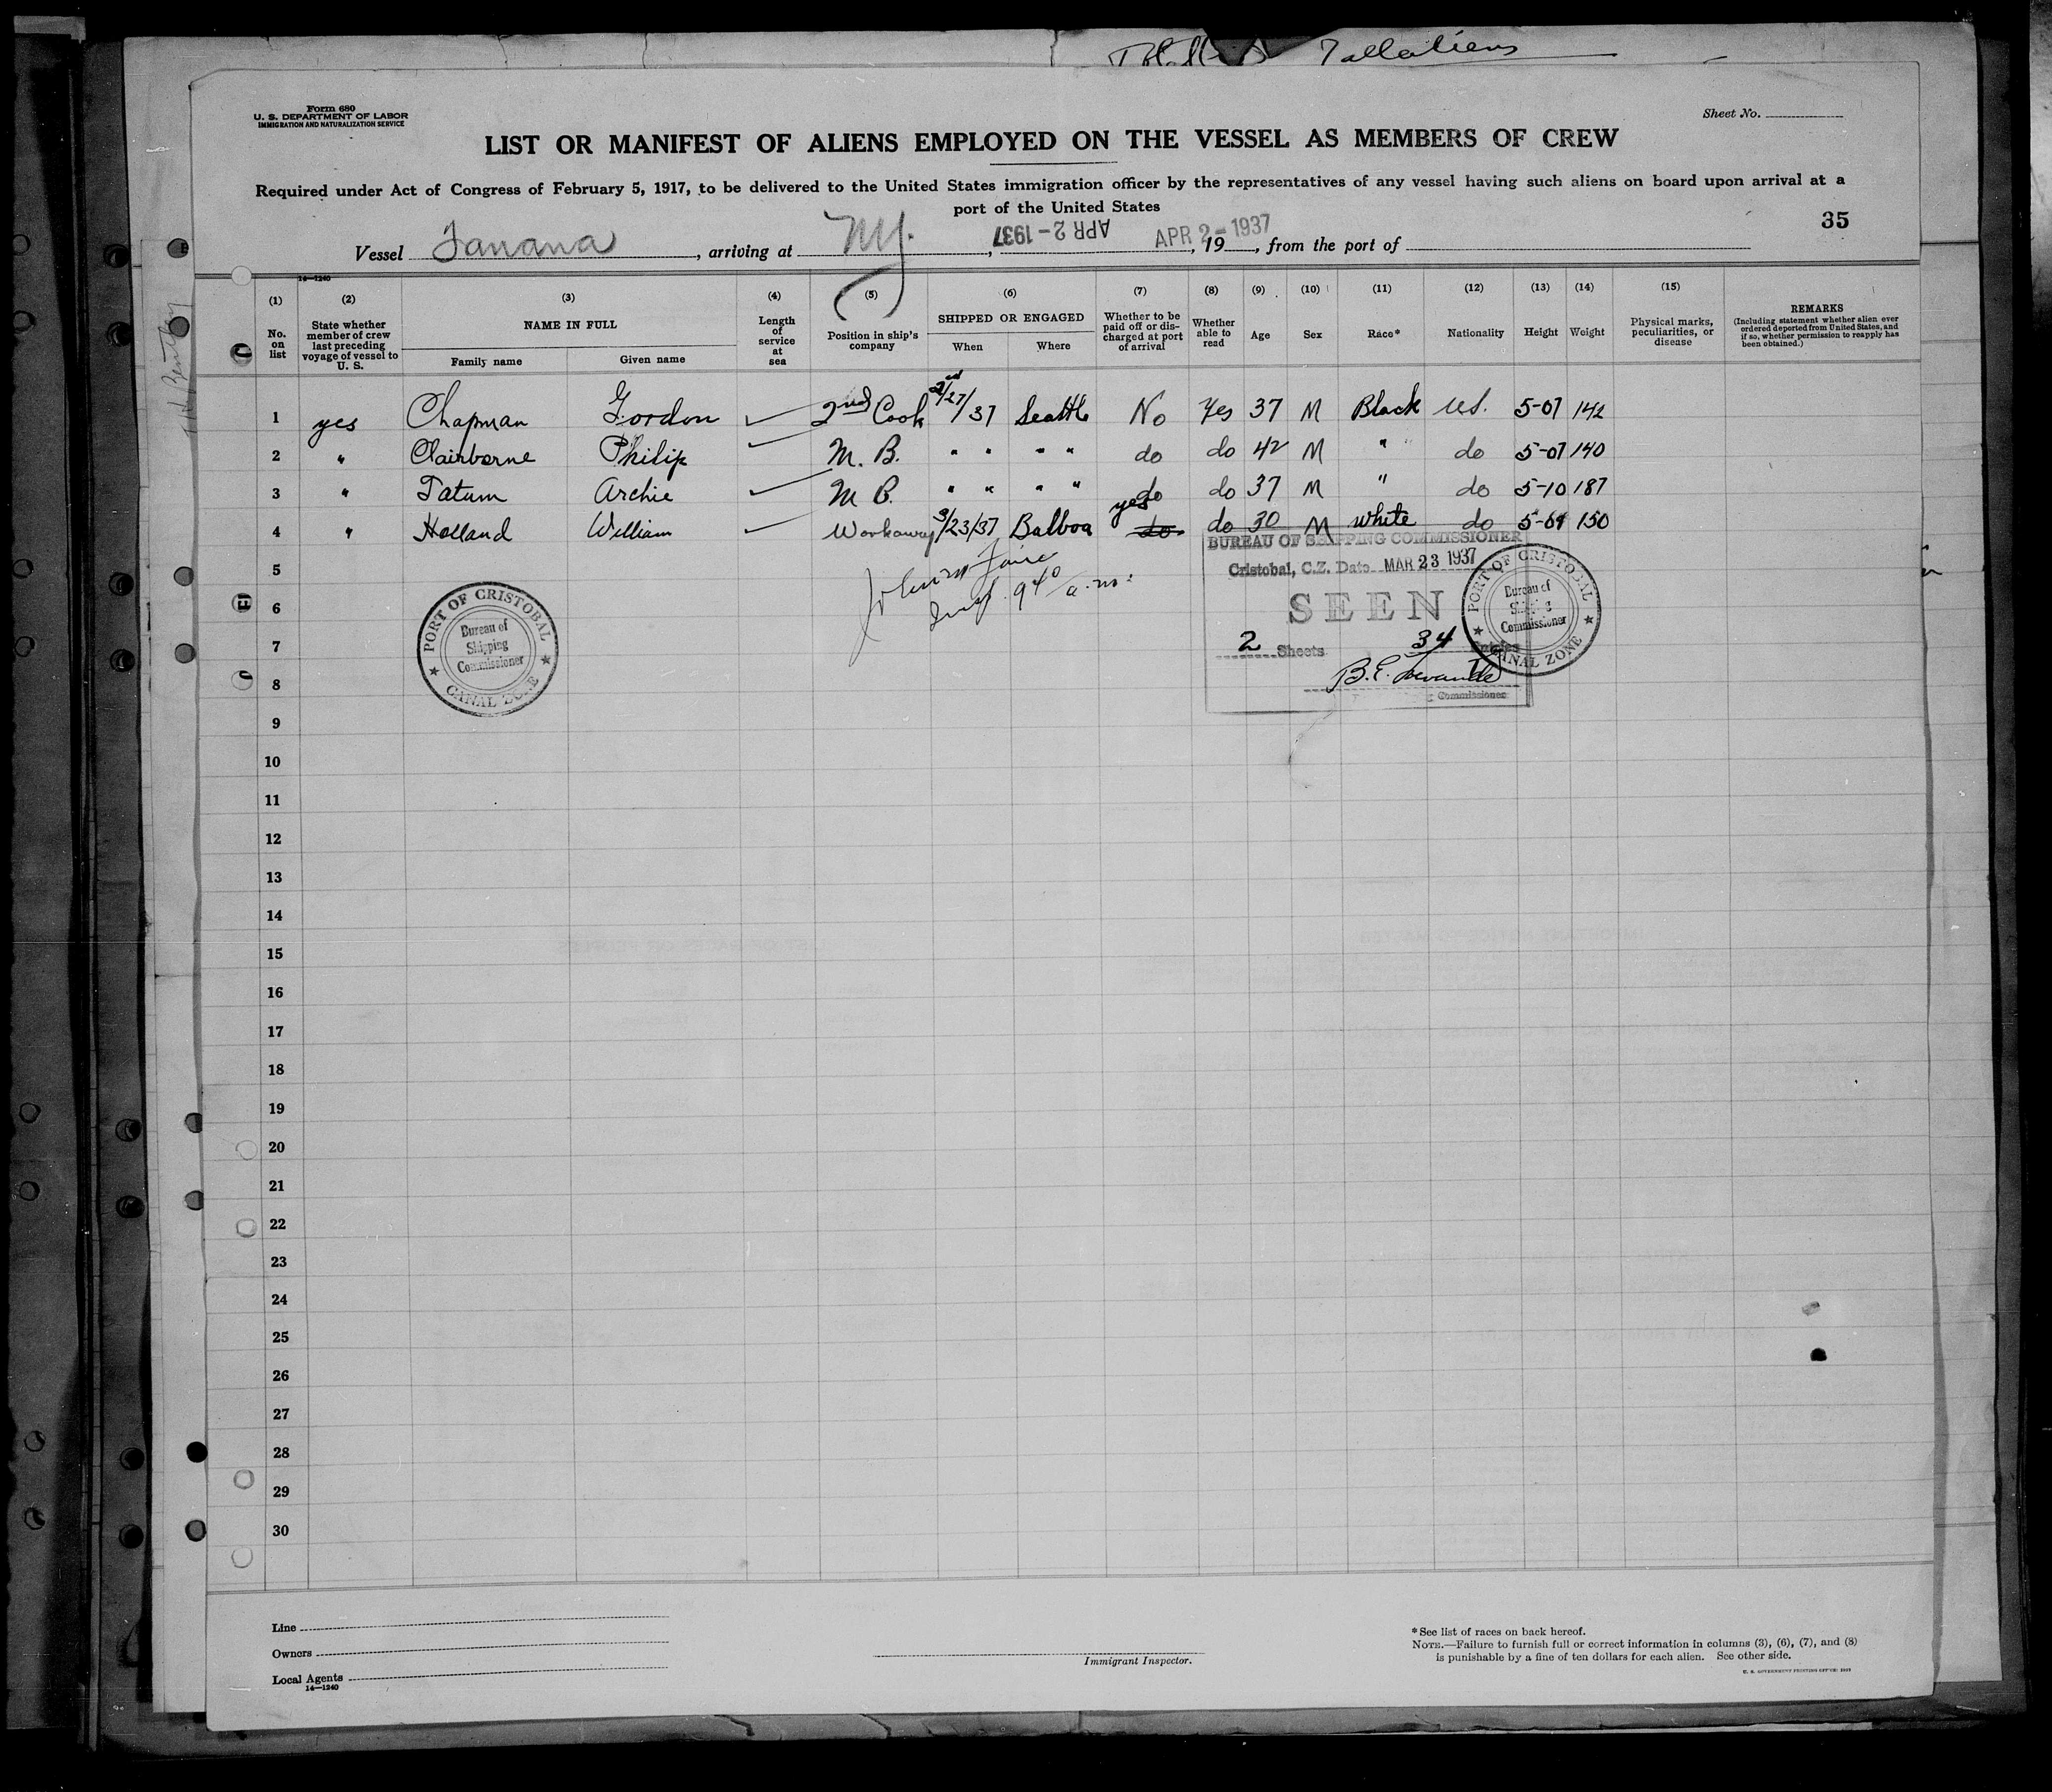 Tallatiens
Form 680
U. S. DEPARTMENT OF LABOR
IMMIGRATION AND NATURALIZATION SERVICE
Sheet No.
LIST OR MANIFEST OF ALIENS EMPLOYED ON THE VESSEL AS MEMBERS OF CREW
Required under Act of Congress of February 5, 1917, to be delivered to the United States immigration officer by the representatives of any vessel having such aliens on board upon arrival at a
port of the United States
35
Vessel Tanana, arriving at NY., APR 2-1937 APR 2-1937, 19, from the port of
14-1240
(1) (2) (3) (4) (5) (6) (7) (8) (9) (10) (11) (12) (13) (14) (15)
No. on list
State whether member of crew last preceding voyage of vessel to U. S.
NAME IN FULL
Family name
Given name
Length of service at sea
Position in ship's company
SHIPPED OR ENGAGED
When
Where
Whether to be paid off or discharged at port of arrival
Whether able to read
Age
Sex
Race*
Nationality
Height
Weight
Physical marks, peculiarities, or disease
REMARKS
(Including statement whether alien ever ordered deported from United States, and if so, whether permission to reapply has been obtained.)
1 yes Chapman Gordon 2nd Cook 2/27/37 Seattle No Yes 37 M Black US. 5-07 142
2 " Clairborne Philip M. B. " " " " do do 42 M " " do 5-07 140
3 " Tatum Archie M B. " " " " do do 37 M " do 5-10 187
4 " Holland William Workaway 3/23/37 Balboa yes do do 30 M White do 5-69 150
5
6
7
8
9
10
11
12
13
14
15
16
17
18
19
20
21
22
23
24
25
26
27
28
29
30
Insp. 9 40 a.m.
PORT OF CRISTOBAL
Bureau of
Shipping
Commissioner
CANAL ZONE
BUREAU OF SHIPPING COMMISSIONER
Cristobal, C.Z. Date MAR 23 1937
SEEN
2 Sheets 34
Commissioner
PORT OF CRISTOBAL
Bureau of
Shipping
Commissioner
CANAL ZONE
Line
Owners
Local Agents
14-1240
Immigrant Inspector.
*See list of races on back hereof.
NOTE.—Failure to furnish full or correct information in columns (3), (6), (7), and (8)
is punishable by a fine of ten dollars for each alien. See other side.
U. S. GOVERNMENT PRINTING OFFICE: 1937